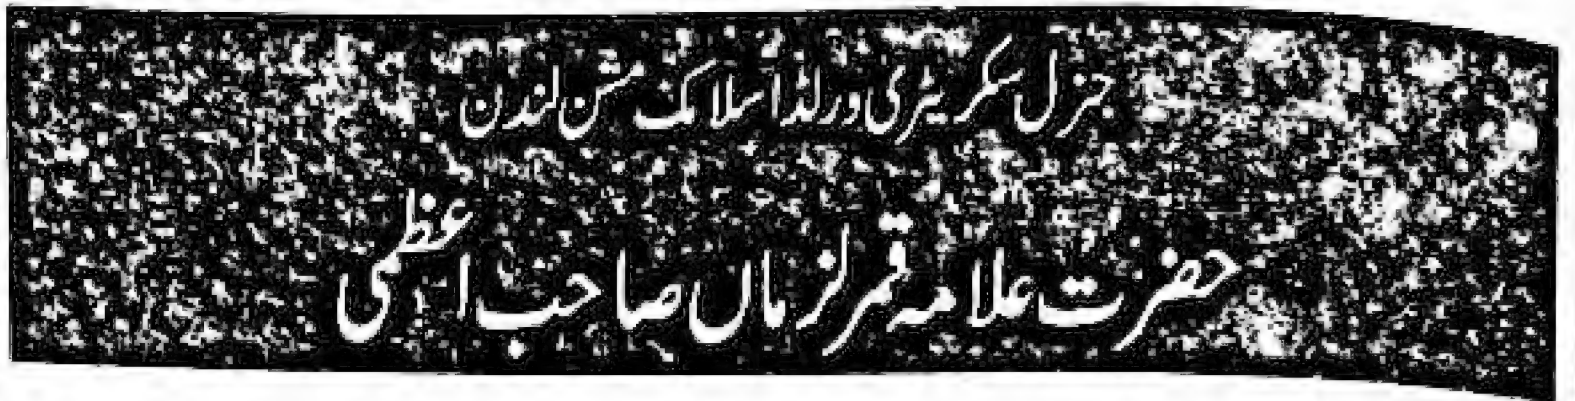 جنرل سکریٹری ورلڈ اسلامک مشن لندن
حضرت علامہ قمر الزماں صاحب اعظمی